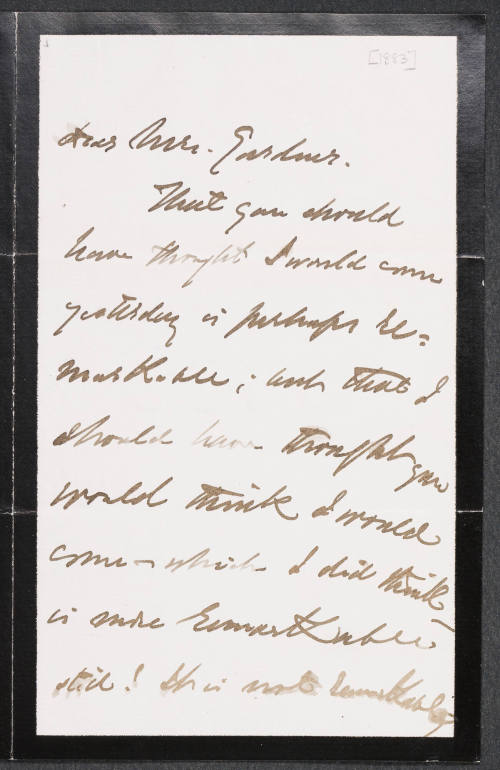 [1883]
Dear Mrs. Gardner.
That you should
have thought I would come
yesterday is perhaps re=
markable; but that I
should have thought you
would think I would
come - which I did think -
is more remarkable
still! It is not remarkable